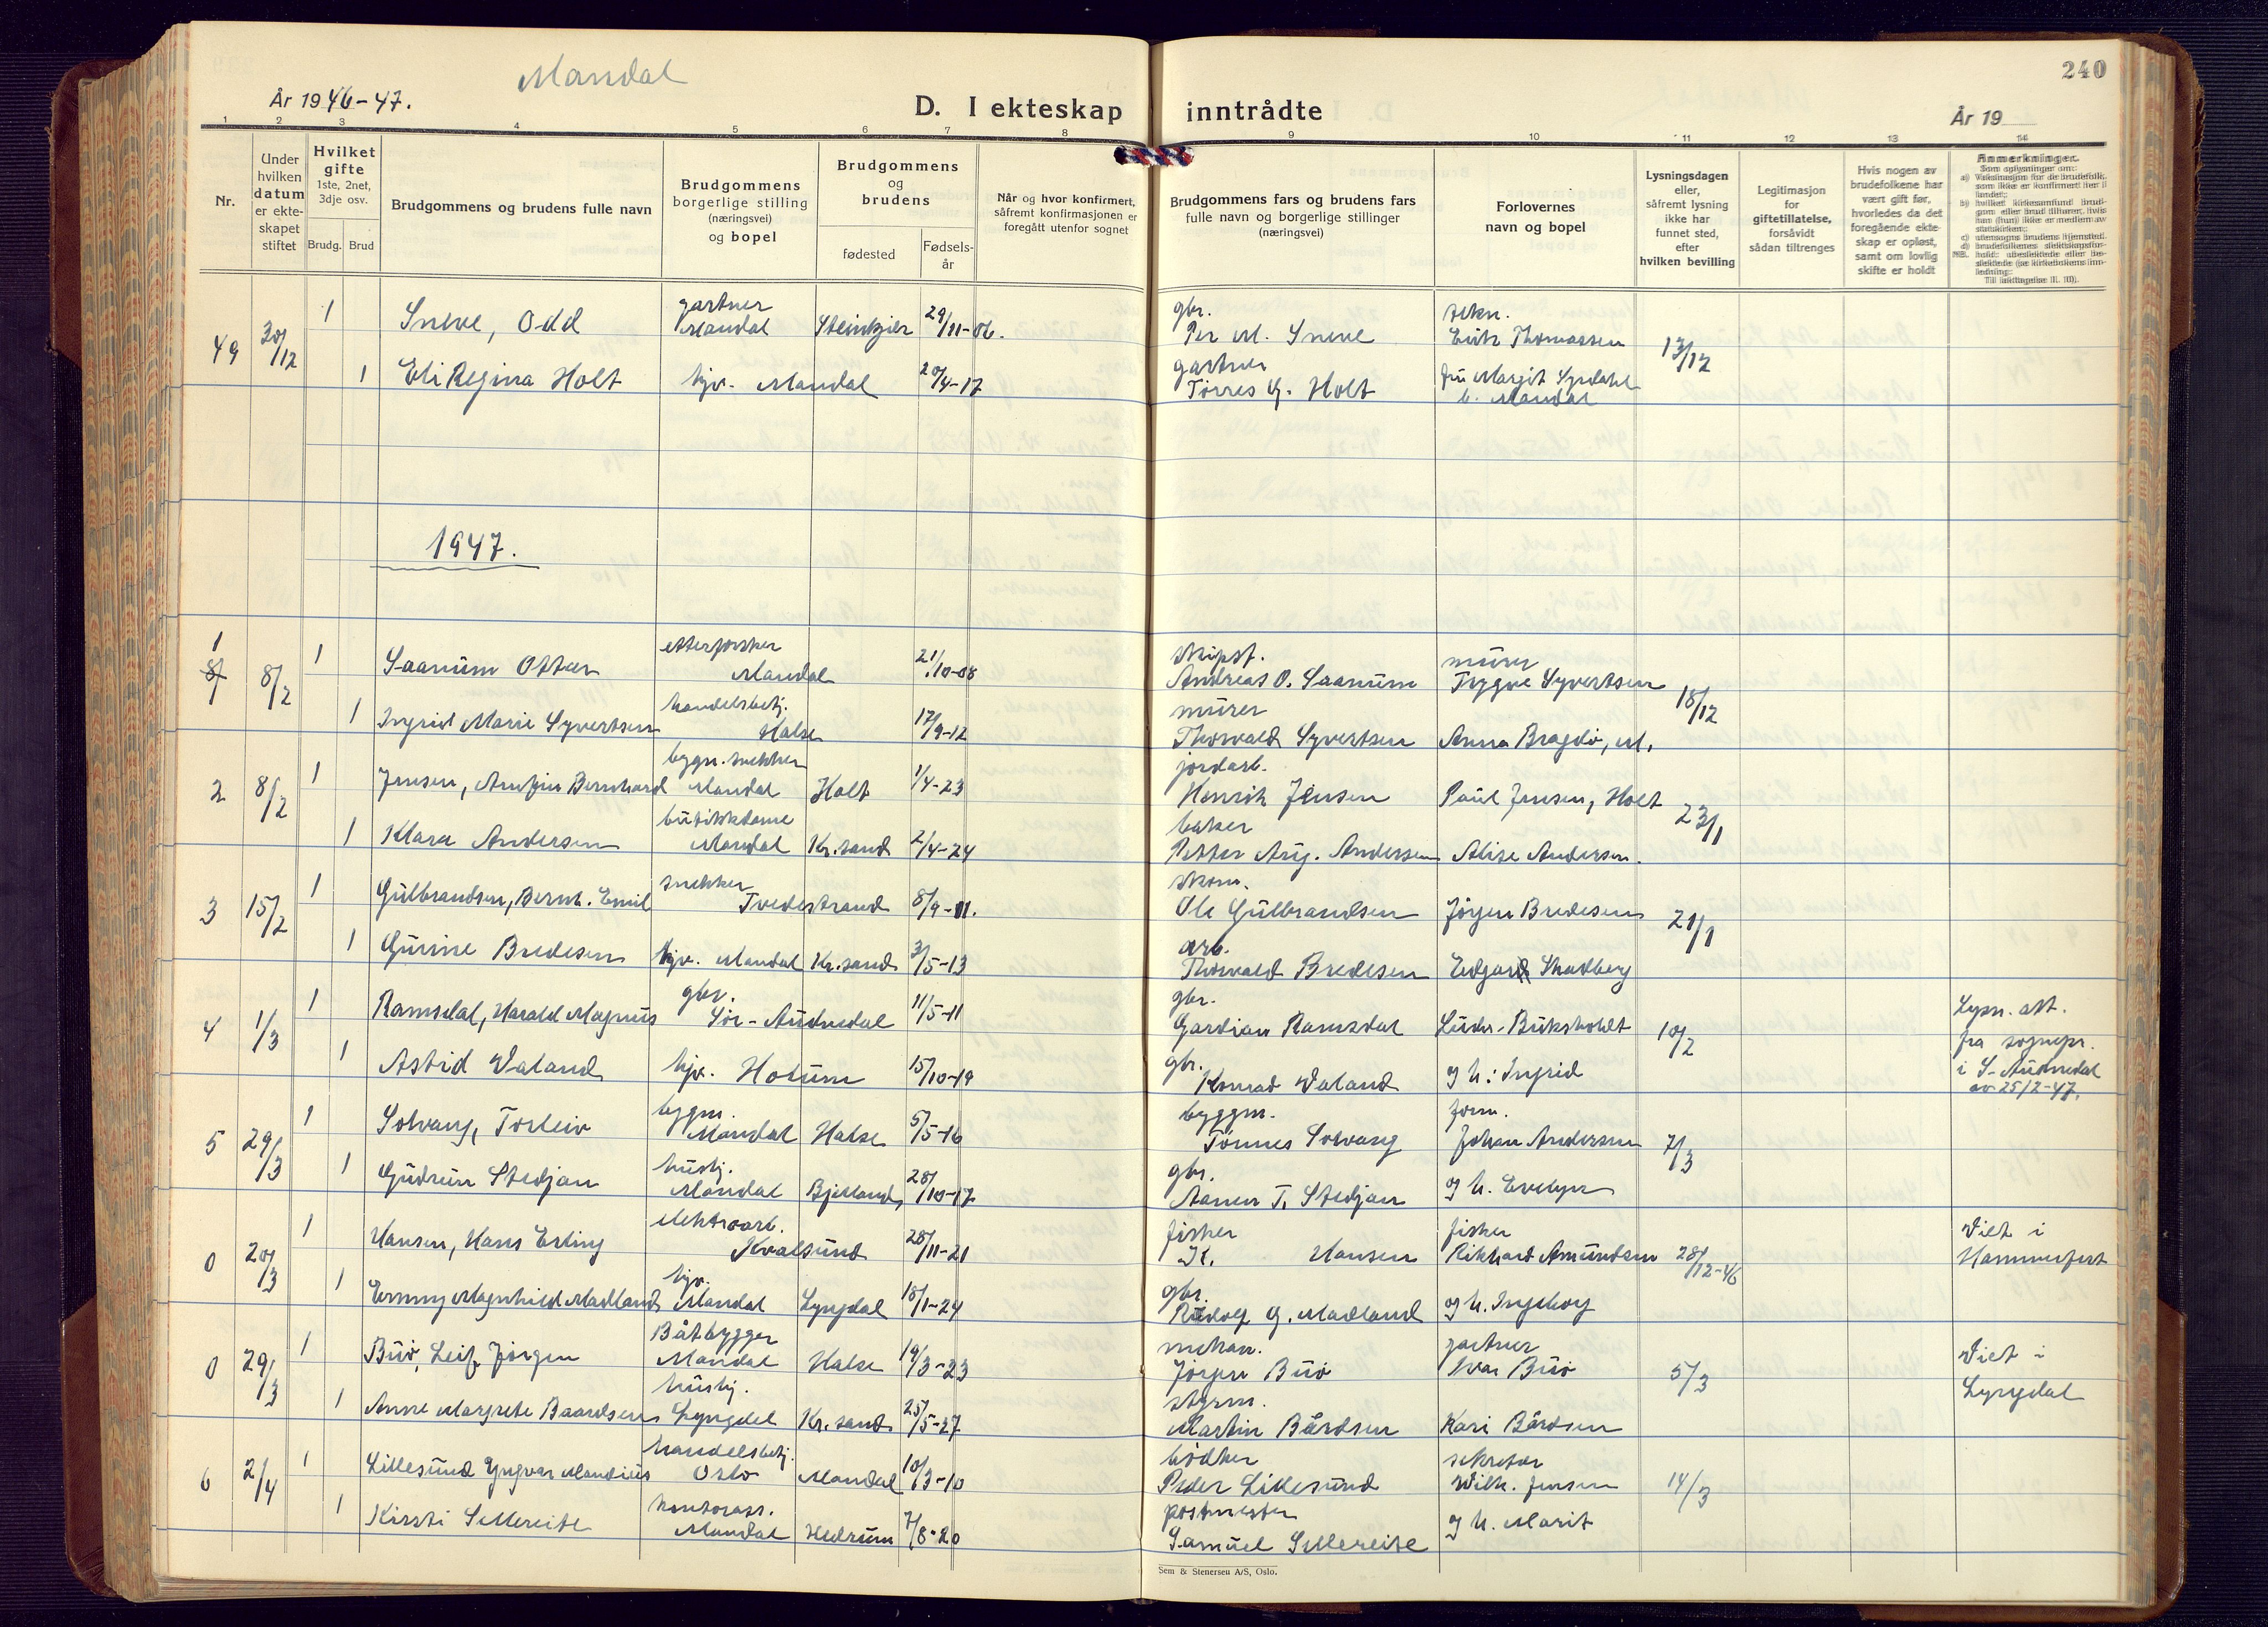 Mandal
240
År 1946-47.
D. I ekteskap inntrådte
År 19
1 2 3 4 5 6 7 8 9 10 11 12 13 14
Nr.
Under
hvilken
datum
er ekte-
skapet
stiftet
Hvilket
gifte
1ste, 2net,
3dje osv.
Brudg. Brud
Brudgommens og brudens fulle navn
Brudgommens
borgerlige stilling
(næringsvei)
og bopel
Brudgommens
og
brudens
fødested
Fødsels-
år
Når og hvor konfirmert,
såfremt konfirmasjonen er
foregått utenfor sognet
Brudgommens fars og brudens fars
fulle navn og borgerlige stillinger
(næringsvei)
Forlovernes
navn og bopel
Lysningsdagen
eller,
såfremt lysning
ikke har
funnet sted,
efter
hvilken bevilling
Legitimasjon
for
giftetillatelse,
forsåvidt
sådan tiltrenges
Hvis nogen av
brudefolkene har
vært gift før,
hvorledes da det
foregående ekte-
skap er opløst,
samt om lovlig
skifte er holdt
Anmerkninger.
Som oplysninger om:
49 30/12 1 Sneve, Odd gartner Mandal Steinkjer 29/11-06. gbr. Per M. Sneve sekr. Erik Thomassen 13/12
1 Eli Regina Holt hjv. Mandal 20/4-17 gartner Tørres G. Holt fru Margit Syrdahl b. Mandal
1947.
1 8/2 1 Saanum Ottar etterforsker Mandal 21/10-08 skipsf. Andreas O. Saanum murer Trygve Syvertsen 18/12
1 Ingrid Marie Syvertsen handelsbetj. Halse 17/9-12 murer Thorvald Syvertsen Anna Bragdø, M.
2 8/2 1 Jensen, Arnfin Bernhard bygn.snekker Mandal Holt 1/4-23 jordarb. Henrik Jensen Paul Jensen, Holt 23/1
1 Klara Andersen butikkdame Mandal Kr.sand 2/4-24 baker Petter Aug. Andersen Alise Andersen.
3 15/2 1 Gulbrandsen, Bernh. Emil snekker Tvedestrand 8/9-11. skom. Ole Gulbrandsen Jørgen Bredesen 21/1
1 Gurine Bredesen hjv. Mandal Kr.sand 3/5-13 arb. Thorvald Bredesen Edgard Skadberg
4 1/3 1 Ramsdal, Harald Magnus gbr. Sør-Audnedal 11/5-11 gbr. Gardian Ramsdal Luder Buksholdt 10/2 Lysn. att. fra sognepr. i S-Audnedal av 25/2-47.
1 Astrid Valand hjv. Holum 15/10-19 gbr. Konrad Valand og h: Ingrid
5 29/3 1 Solvang, Torleiv bygm. Mandal Halse 5/5-16 byggm. Tønnes Solvang form. Johan Andersen 7/3
1 Gudrun Stedjan hushj. Mandal Bjelland, 28/10-17 gbr. Aanen T. Stedjan og h. Evelyn
0 20/3 1 Hansen, Hans Erling elektroarb. Kvalsund 28/11-21 fisker K. Hansen fisker Rikhard Amundsen 28/12-46 Viet i Hammerfest
1 Emmy Magnhild Madland hjv. Mandal Lyngdal 18/1-24 gbr. Rudolf G. Madland og h. Ingeborg
0 29/3 1 Buø, Leif Jørgen Båtbygger Mandal Halse 19/3-23 mekan. Jørgen Buø gartner Ivar Buø 5/3 Viet i Lyngdal
1 Anne Margrete Baardsen hushj. Lyngdal Kr.sand 25/5-27 styrm. Martin Bårdsen Kari Bårdsen
6 2/4 1 Lillesund Yngvar Mandius handelsbetj. Oslo Mandal 10/3-10 bødker Peder Lillesund sekretær Wilh. Jensen 14/3
1 Kirsti Sellereite kontorass. Mandal Hedrum 7/8-20 postmester Samuel Sellereite og h. Marit
Sem & Stenersen A/S, Oslo.